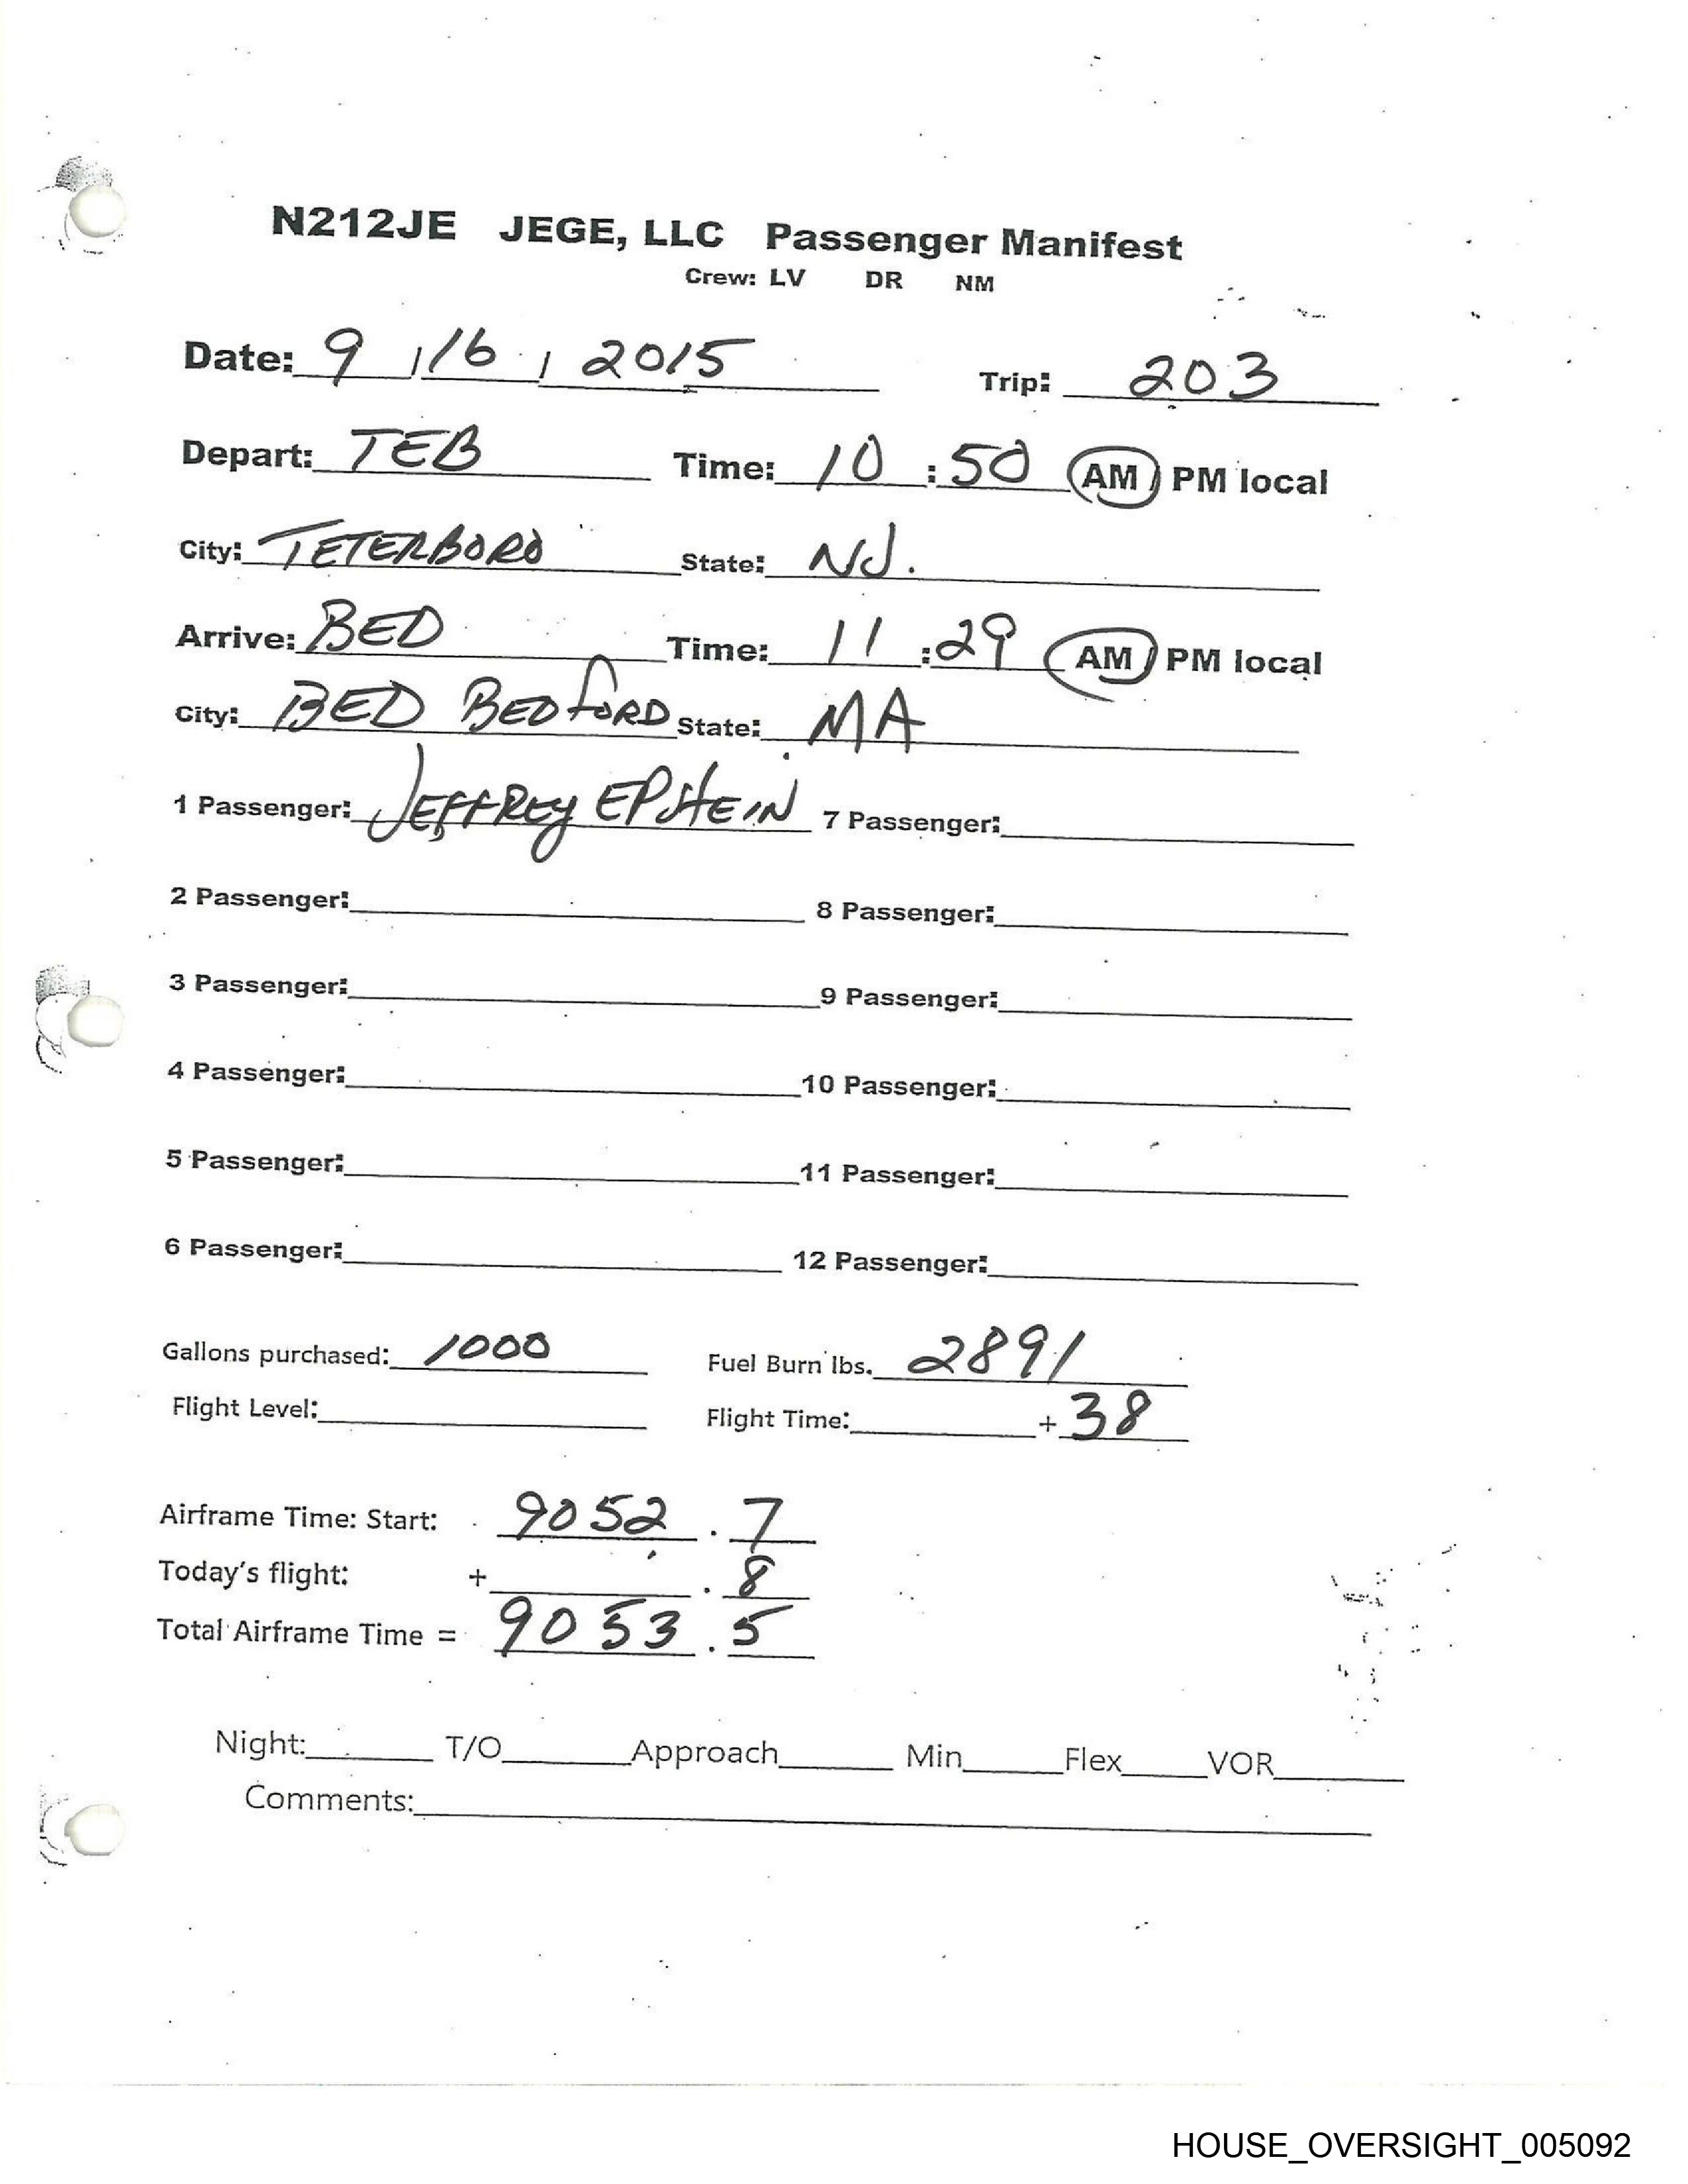 N212JE JEGE, LLC Passenger Manifest
Crew: LV DR NM
Date: 9 / 16 / 2015 Trip: 203
Depart: TEB Time: 10 : 50 AM / PM local
City: TETERBORO State: NJ.
Arrive: BED Time: 11 : 29 AM / PM local
City: BED BEDFORD State: MA
1 Passenger: JEFFREY EPSTEIN 7 Passenger:
2 Passenger: 8 Passenger:
3 Passenger: 9 Passenger:
4 Passenger: 10 Passenger:
5 Passenger: 11 Passenger:
6 Passenger: 12 Passenger:
Gallons purchased: 1000 Fuel Burn lbs. 2891
Flight Level: Flight Time: + 38
Airframe Time: Start: 9052 . 7
Today's flight: + . 8
Total Airframe Time = 9053 . 5
Night: T/O Approach Min Flex VOR
Comments:
HOUSE_OVERSIGHT_005092